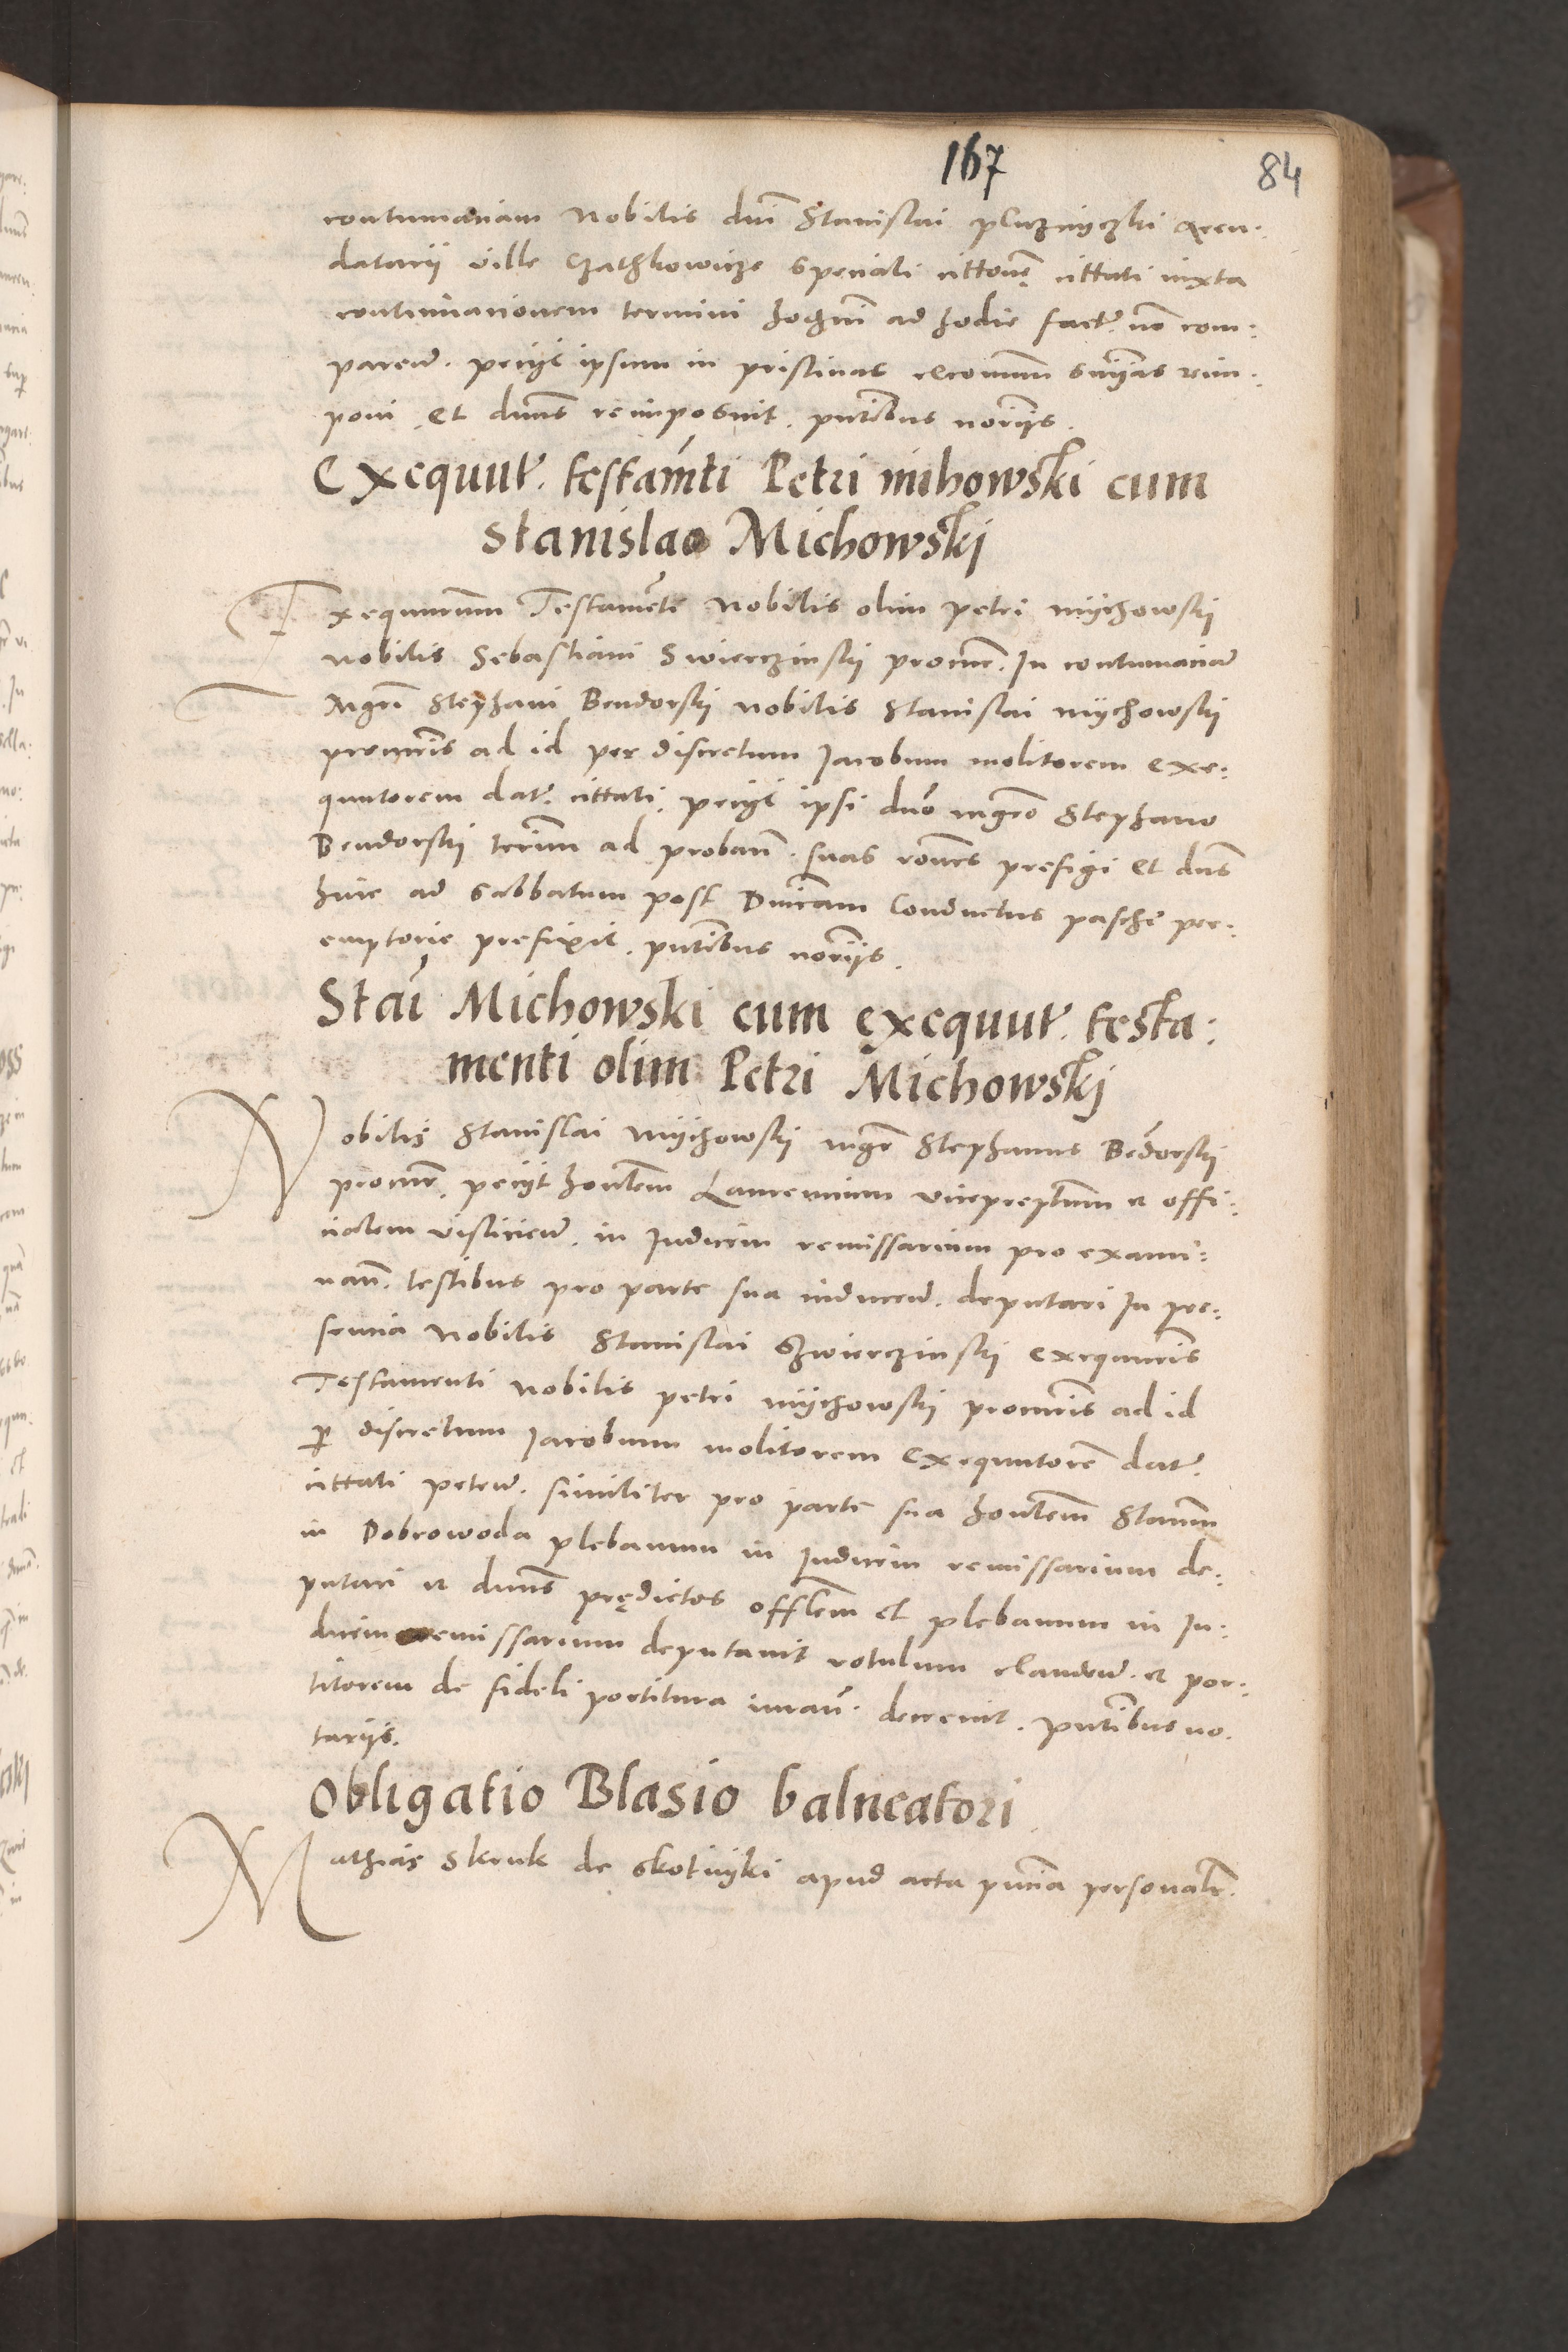 167
84
contumaciam Nobilis dni Stanislai pluznyczki Aren:
datarii ville Czathkowicze speciali cittone cittati iuxta
continuacionem termini hodierni ad hodie factu. no com:
paren. peciit ipsum in pristinas excoicum snias reim:
poni, et dnus reimposuit. pntibus noriis.
Exequut. testamti Petri mihowski cum
Stanislao Michowskj
Exequutorum Testamenti Nobilis olim petri mychowskj
nobilis Sebastiani Swierczinskj procur. In contumacia
Mgri Stephani Bendorskj nobilis Stanislai mychowskj
procuris ad id per discretum Jacobum molitorem exe:
quutorem dat. cittati, peciit ipsi dno mgro Stephano
Bendorskj termin ad proban. suas rones prefigi et dns
huic ad sabbatum post Dnicam Conductus pasche per:
emptorie prefixit. pntibus noriis.
Stai Michowski cum exequut. testa:
menti olim Petri Michowskj
Nobilis Stanislai mychowskj mgr Stephanus Bedorskj
procur, peciit hontem Laurencium vicepreptum et offi:
cialem vislicien. in Iudicem remissarium pro exami:
nan. testibus pro parte sua inducen. deputari In pre:
sencia nobilis Stanislai Szwierczinskj exequuris
Testamenti nobilis petri mychowskj procuris ad id
p discretum Jacobum molitorem Exequutore dat.
cittati peten. similiter pro parte sua hontem Stanm
in Dobrowoda plebanum in Iudicem remissarium de:
putari et dnus prędictos offlem et plebanum in Iu:
dicem remissarium deputauit rotulum clauden. et por:
titorem de fideli portitura iuran. decreuit. pntibus no.
tariis.
Obligatio Blasio balneatori
Mathias Skruk de Skotniki apud acta pncia personalr.